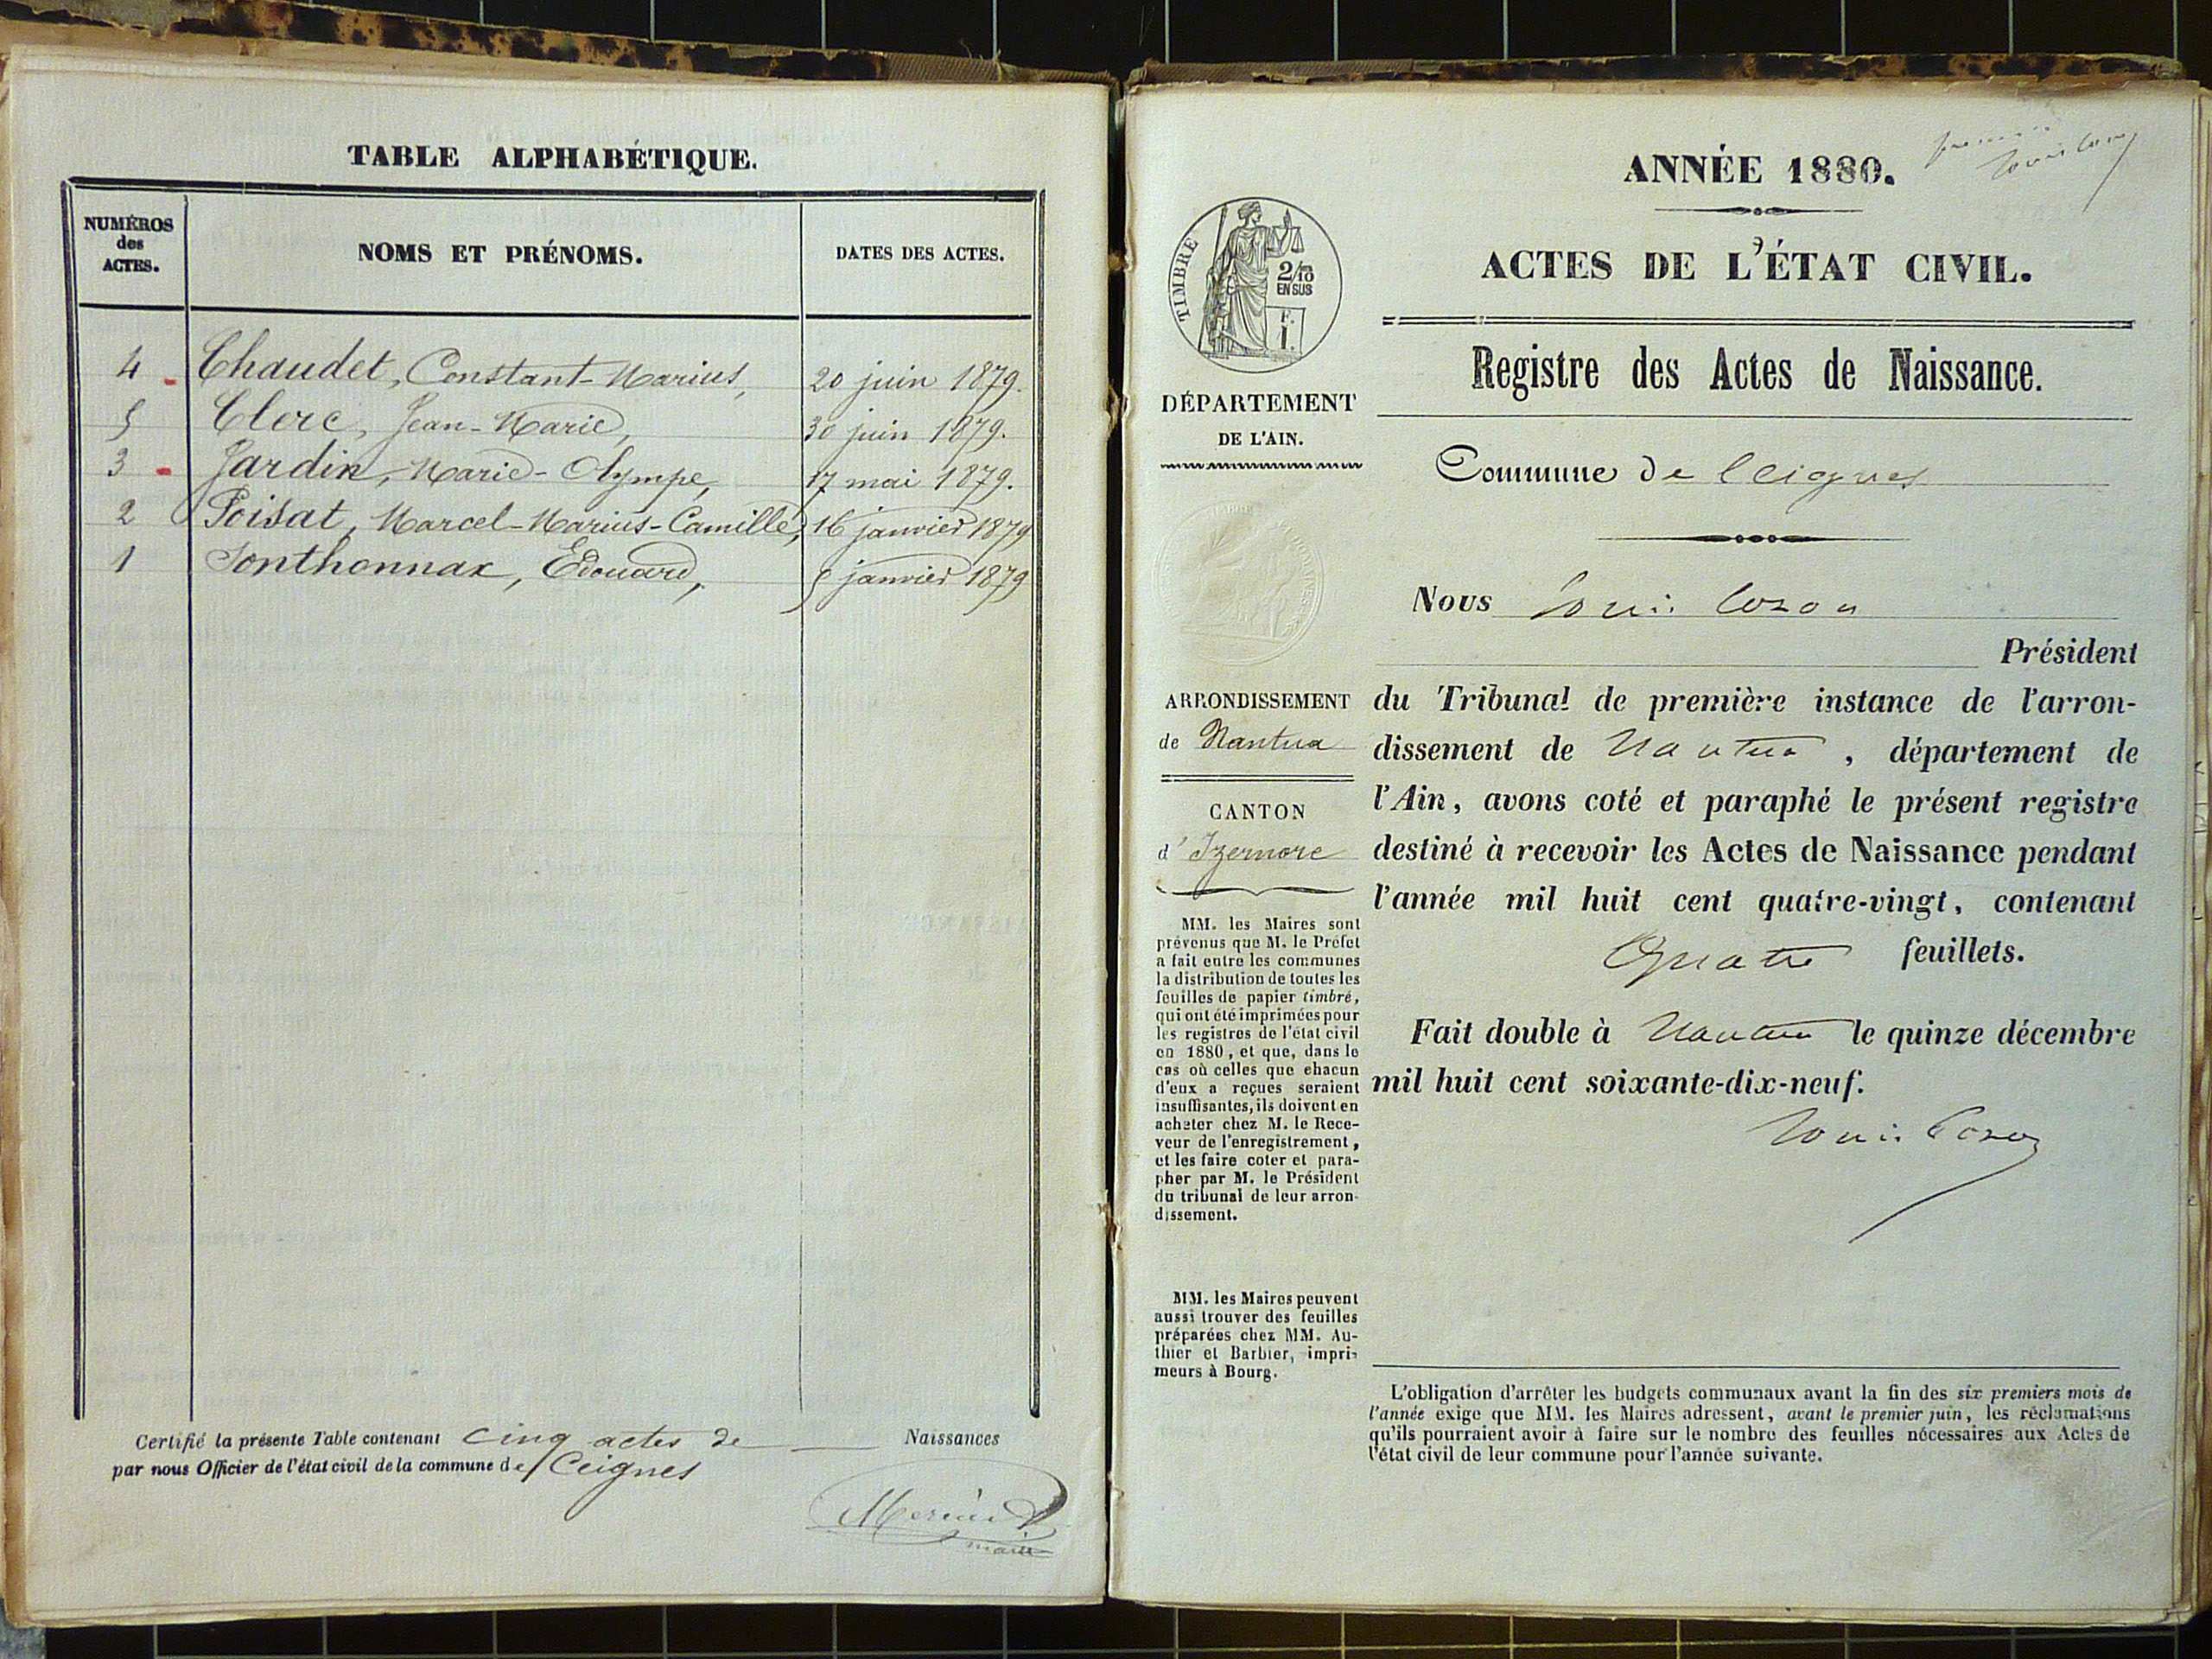 TABLE ALPHABÉTIQUE.
NUMÉROS
des
ACTES.
NOMS ET PRÉNOMS.
DATES DES ACTES.
4 Chaudet, Constant-Marius, 20 juin 1879.
5 Clerc, Jean-Marie, 30 juin 1879.
3 Jardin, Marie-Olympe, 17 mai 1879.
2 Poisat, Marcel-Marius-Camille, 16 janvier 1879
1 Sonthonnax, Edouard, 5 janvier 1879
Certifié la présente Table contenant cinq actes de Naissances
par nous Officier de l'état civil de la commune de Ceignes
maire
ANNÉE 1880.
Louis Coson
ACTES DE L'ÉTAT CIVIL.
TIMBRE
2/10
EN SUS
DÉPARTEMENT
DE L'AIN.
Registre des Actes de Naissance.
Commune de Ceignes
Nous Louis Coson
Président
du Tribunal de première instance de l'arron-
dissement de Nantua, département de
l'Ain, avons coté et paraphé le présent registre
destiné à recevoir les Actes de Naissance pendant
l'année mil huit cent quatre-vingt, contenant
Quatre feuillets.
Fait double à Nantua le quinze décembre
mil huit cent soixante-dix-neuf.
Louis Coson
ARRONDISSEMENT
de Nantua
CANTON
d'Izernore
MM. les Maires sont
prévenus que M. le Préfet
a fait entre les communes
la distribution de toutes les
feuilles de papier timbré,
qui ont été imprimées pour
les registres de l'état civil
en 1880, et que, dans le
cas où celles que chacun
d'eux a reçues seraient
insuffisantes, ils doivent en
acheter chez M. le Rece-
veur de l'enregistrement,
et les faire coter et para-
pher par M. le Président
du tribunal de leur arron-
dissement.
MM. les Maires peuvent
aussi trouver des feuilles
préparées chez MM. Au-
thier et Barbier, impri-
meurs à Bourg.
L'obligation d'arrêter les budgets communaux avant la fin des six premiers mois de
l'année exige que MM. les Maires adressent, avant le premier juin, les réclamations
qu'ils pourraient avoir à faire sur le nombre des feuilles nécessaires aux Actes de
l'état civil de leur commune pour l'année suivante.